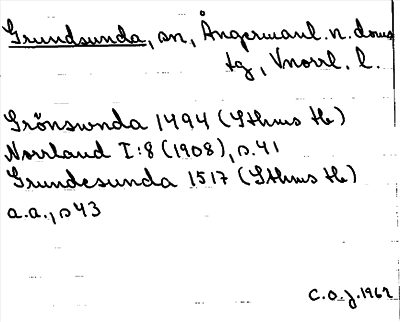 Grundsunda, sn, Ångermanl. n. doms
tg, Vnorrl. l.
Grönswnda 1494 (Sthms tb)
Norrland I:8 (1908), s. 41
Grundesunda 1517 (Sthms tb)
a.a., s 43
C.O.J. 1962